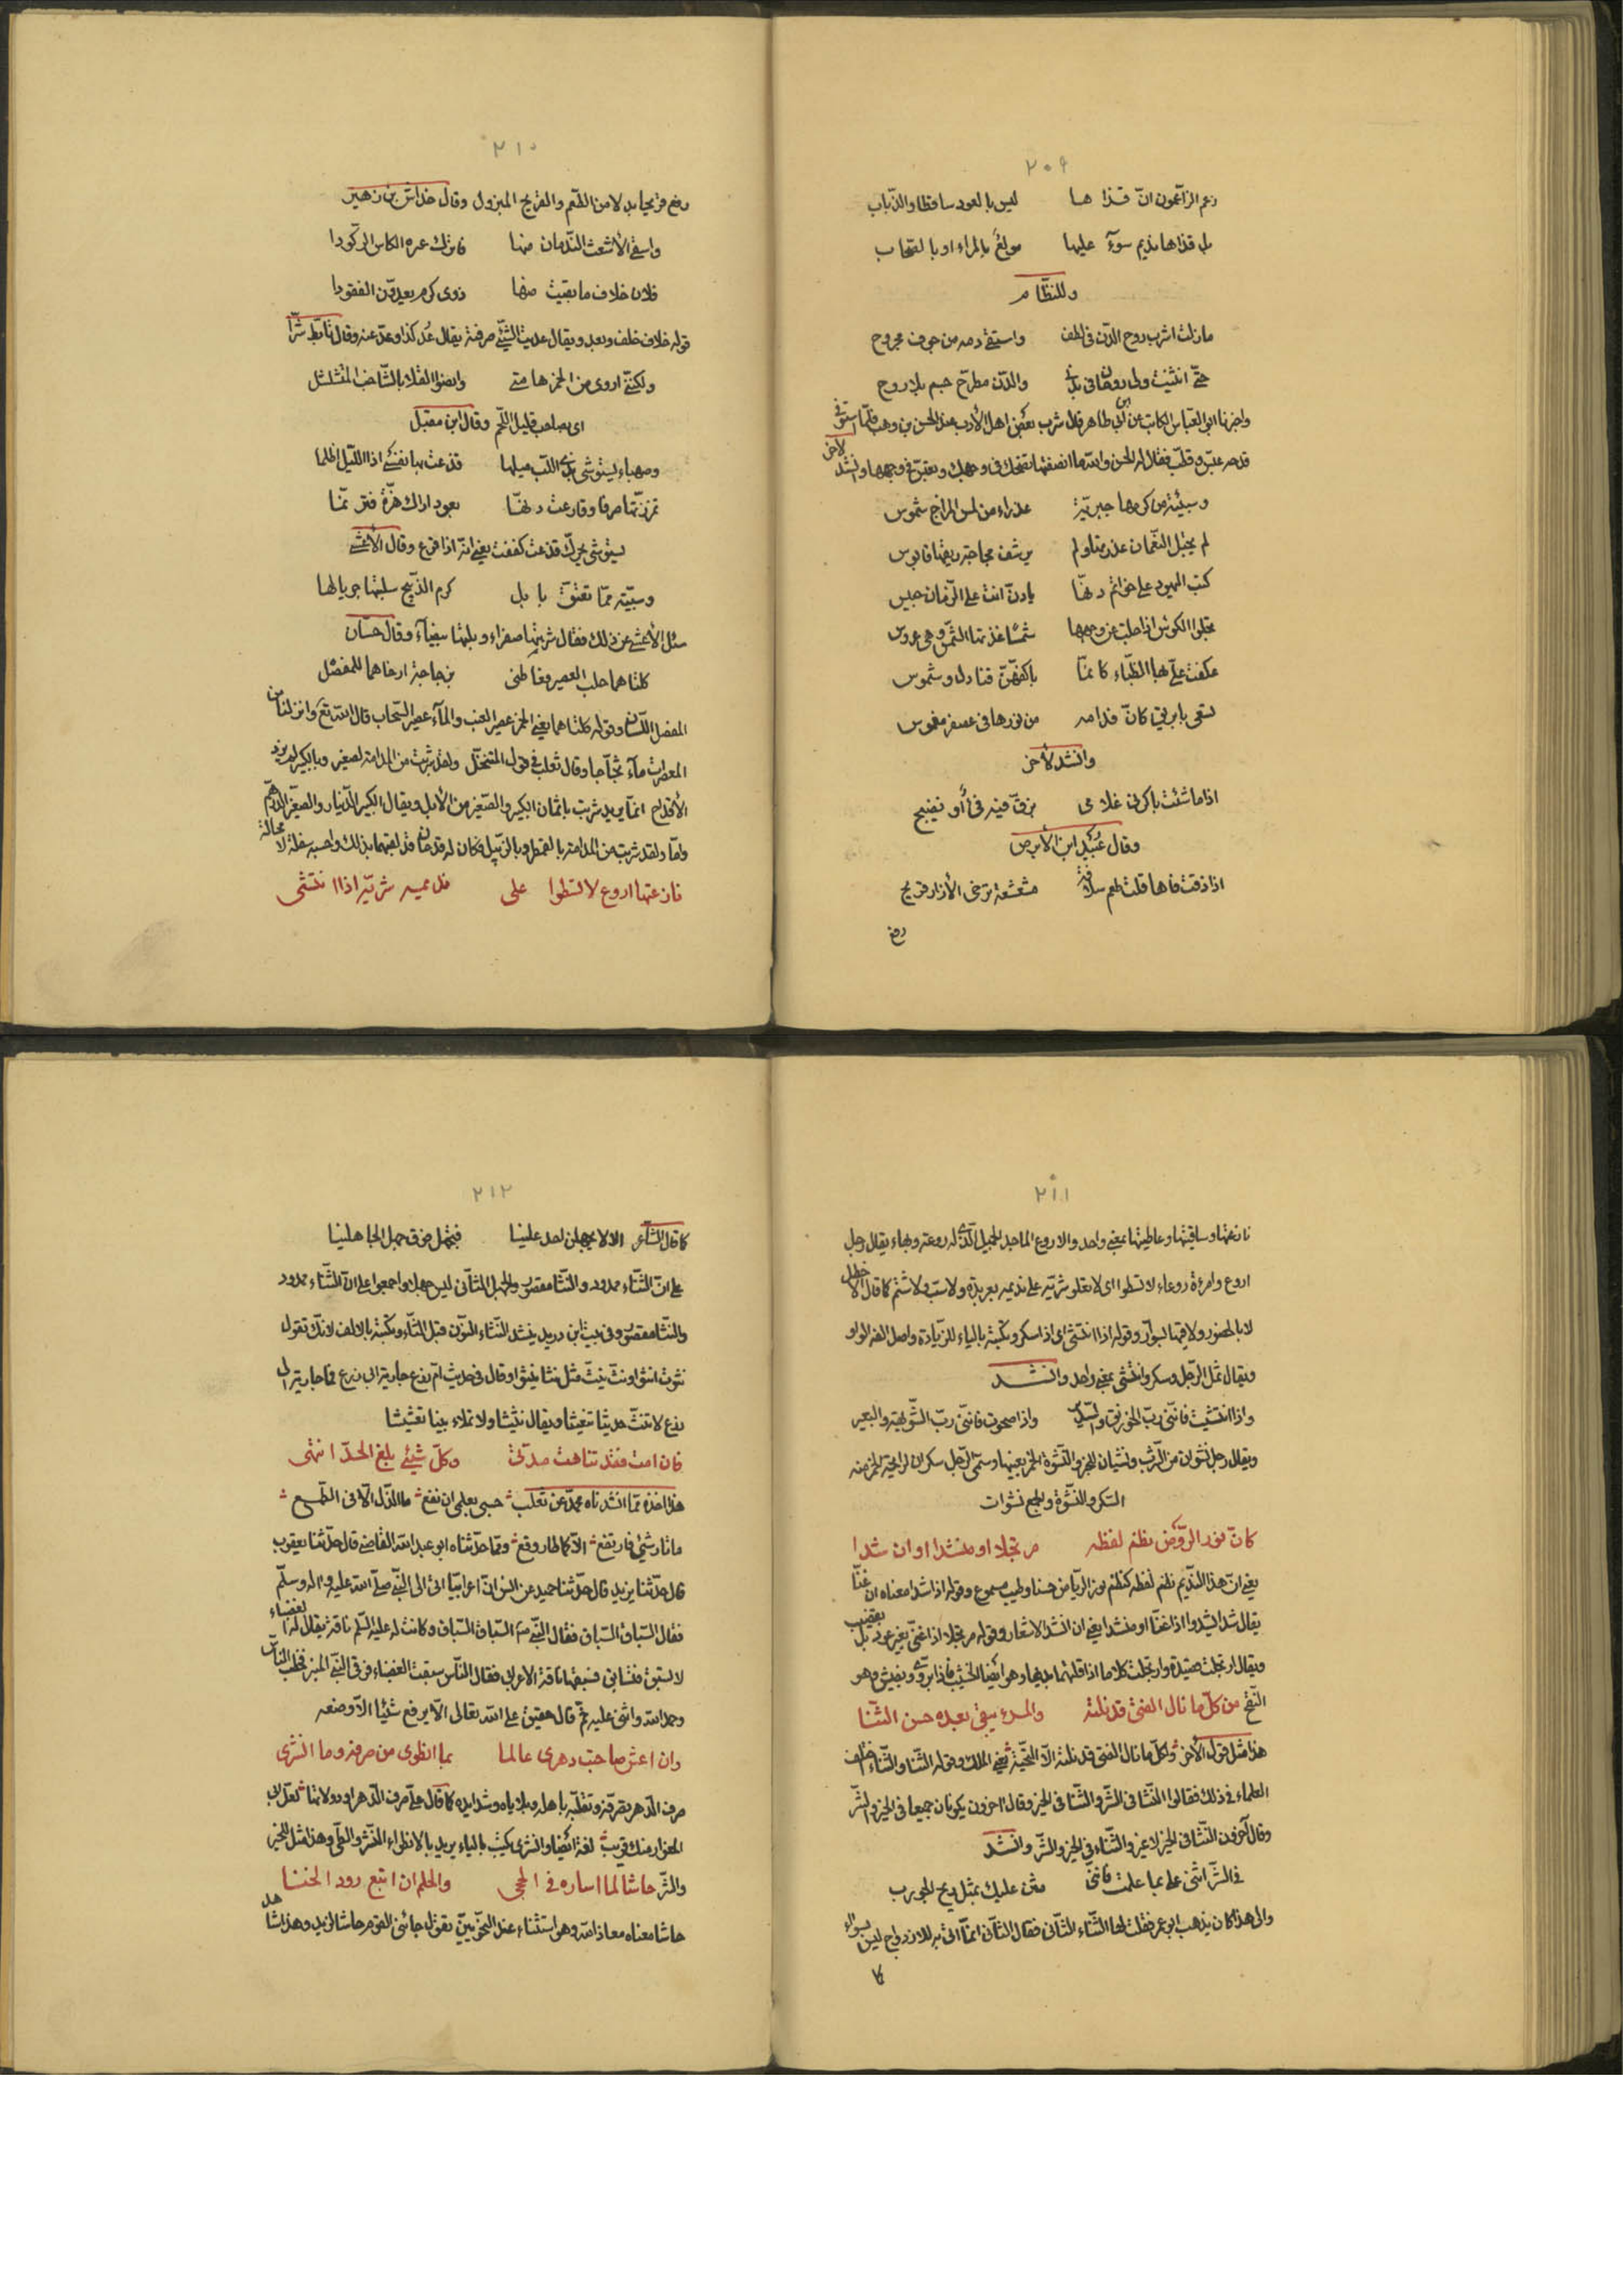 ٢٠٩
زعم الزاعمون انّ قذاها ليس بالعود ساقطا والذباب
بل قذاها نديم سوء عليها مولع بالمراء او با
وللنظّام
ما زلت اشرب روح الدّن في لطف واستقي دمه من جوف مجروح
حتّى انثنيت ولي روحان في بدني والدّن مطرّح جسم بلا روح
واخبرنا ابو العبّاس الكاتب عن ابن ابي طاهر قال شرب بعض اهل الأدب عند الحسن بن وهب فلمّا استوفى
قدحه عبّس وقطّب فقال له الحسن والله ما انصفتها تضحك في وجهك وتعبّس في وجهها وانشد لآخر
وسبيئة من كرمها عذراء من لمس المزاج شموس
لم النعمان
كتب اليهود على خواتم دنّها يا دنّ انت على الزمان حبيس
عكفت بها الظّباء كانمّا باكفّهنّ وشموس
تسقى بابريق كانّ فدامه من في عصفر مغموس
وانشد لآخر
اذا ما شئت باكرني غلامي بزقّ فيه فيء أو نضيج
وقال عبيد ابن الأبرص
اذا ذقت فاها قلت طعم مدامة مشعشعة ترخى الأزار قديح
رفع
٢١٠
رفع قديحا بدلا من الطّعم والقديح المبزول وقال خداش بن زهير
واسقي الأشعث النّدمان منها فاترك عنده الكاس الركودا
فلان خلاف ما بقيت منها ذوى كرم بعيد الفقودا
قوله خلاف خلف وبعد ويقال عديت الشّئ صرفته يقال عُد كذا وعدّ عنه وقال تابّط شرّا
ولكنّني اروى من الخمر هامتي وانضوا الفلا بالشّاحب المتشلشل
اي بصاحب قليل اللّحم وقال ابن مقبل
وصهباء يستوشي بذي اللّب ميلها قدعت بها نفسي اذا اللّيل اظلما
تمززتها صرفا وقارعت دنّها بعود اراك هزّه فترنّما
يستوشي يحرّك قدعت كففت يعني انّه اذا قرع وقال الأعشى
وسبيّة ممّا تعتّق بابل كدم الذّبيح سلبتها جريالها
سئل الأعشى عن ذلك فقال شربتها صفراء وبلتها بيضآء وقال حسّان
كلتاهما حلب العصير فعاطني بزجاجة ارخاهما للمفصل
المفصل اللّسان وقوله كلتاهما يعني الخمر عصير العنب والمآء عصير السّحاب قال الله تع وانزلنا من
المعصرات مآء ثجّآجا وقال ثعلب في قول المتنخّل ولقد شربت من المدامة بالصغير وبالكبير
الأقداح انّما يريد شربت باثمان الكبير والصّغير من الأبل ويقال الكبير الدّينار والصّغير الدّرهم
نازعتها اروع لا تسطوا على نديمه شرّته اذا انتشى
٢١١
نازعتها وساقيتها وعاطيتها بمعنى واحد والاروع الماجد الجميل الّذي له روعة وبهاء يقال رجل
اروع وامرءة روعاء لا تسطوا اي لا تعلو شرّته على نديمه بعربدة ولا سبّ ولا شتم كما قال الاخطل
لا بالحصور ولا فيها بسوّار وقوله اذا انتشى اي اذا سكر ويكتب بالياء للزيادة واصل الفه الواو
ويقال ثمل الرّجل وسكر وانتشى بمعنى واحد وانشد
واذا انتشيت فانّني ربّ الخورنق والسّدير واذا صحوت فانّني ربّ الشّويهة والبعير
السّكر والنّشوة والجمع نشوات
كانّ نور الرّوض نظم لفظه مرتجلا او منشدا او ان شدا
يعني انّ هذا النديم نظم لفظه كنظم نور الرياض حسنا وطيب مسموع وقوله اذا شدا معناه ان غنّا
يقال شدا يشدوا اذا غنّا او منشدا يعني ان انشد الاشعار وقوله مرتجلا اذا غنّى بغير عود بل بقضيب
من كلّ ما نال الفتى قد نلته والمرء يبقى بعده حسن الثّنا
هذا مثل قول الآخر ولكلّ ما نال الفتى قد نلته الّا التّحيّة يعني الملك وقوله الثّنا والثّناء اختلف
العلماء في ذلك فقالوا النّثا في الشّر والثّنا في الخير وقال آخرون يكونان جميعا في الخير والشّر
وقال آخرون النّثا في الخير لا غير والثّناء في الخير والشّر وانشد
في الشّر اثني على بما علمت فانّني مثن عليك بمثل ريح الجورب
والى هذا كان يذهب ابو عمر فقلت لهما الثّناء الثّاني فقال الثّاني انمّا اتى به للازدواج ليس بسواء
كا
٢١٢
كما قال الشّاعر الا لا يجهلن احد علينا فنجهل فوق جهل الجاهلينا
على انّ الثّناء ممدود والنّثا مقصور والجهل الثّاني ليس جهل واجمعوا على انّ الثّناء ممدود
والنّثا مقصور وفي بيت ابن دريد ينشد النّثا النّون قبل الثّاء ويكتب بالالف لانّك تقول
نثوت انثو ونثّ ينثّ مثل نثا ينثو وقال في حديث امّ زرع جارية ابي زرع فما جارية ابي
زرع لا تنثّ حديثنا تنثيثا ويقال نثيثا ولا تملاء بيتنا تعشيشا
فان امت فقد تناهت مدّتي وكلّ شيئ بلغ الحدّ انتهى
هذا اخذه ممّا انشدناه محمّد عن ثعلب حسبي بعلمي ان نفع ما الذّل الّا في الطّمع
ما طار شئ فارتفع الّا كما طار وقع وممّا حدّثناه ابو عبد الله القاضي قال حدّثنا يعقوب
قال حدّثنا يزيد قال حدّثنا حميد عن انس انّ اعرابيّا اتى الى النّبي صلّى الله عليه واله وسلّم
فقال السّباق السّباق فقال النّبي صه السّباق السّباق وكانت له عليه السّلم ناقة يقال لها العضباء
لا تسبق فتسابق فسبقتها ناقة الاعرابي فقال النّاس سبقت العضباء فرقى النّبي المنبر فخطب النّاس
وحمد الله واثنى عليه ثمّ قال حقيق على الله تعالى الّا يرفع شئيا الّا وضعه
وان اعش صاحبت دهري عالما بما انطوى من صرفه وما انتشرى
صرف الدّهر تصرّفه وتقلّبه باهله وبلاياه وشدايده كما قال على صرف الدّهر او دولاتها لعلّ ابي
المغوار منك قريب لغة ايضا وانشرى يكتب بالياء يريد بالانطواء
والشّر حاشا لما اساره في الحجى والحلم ان اتبع روّد الخنا
حاشا معناه معاذ الله وهو استثناء عند النّحويّين تقول جائني القوم حاشا زيد وهذا